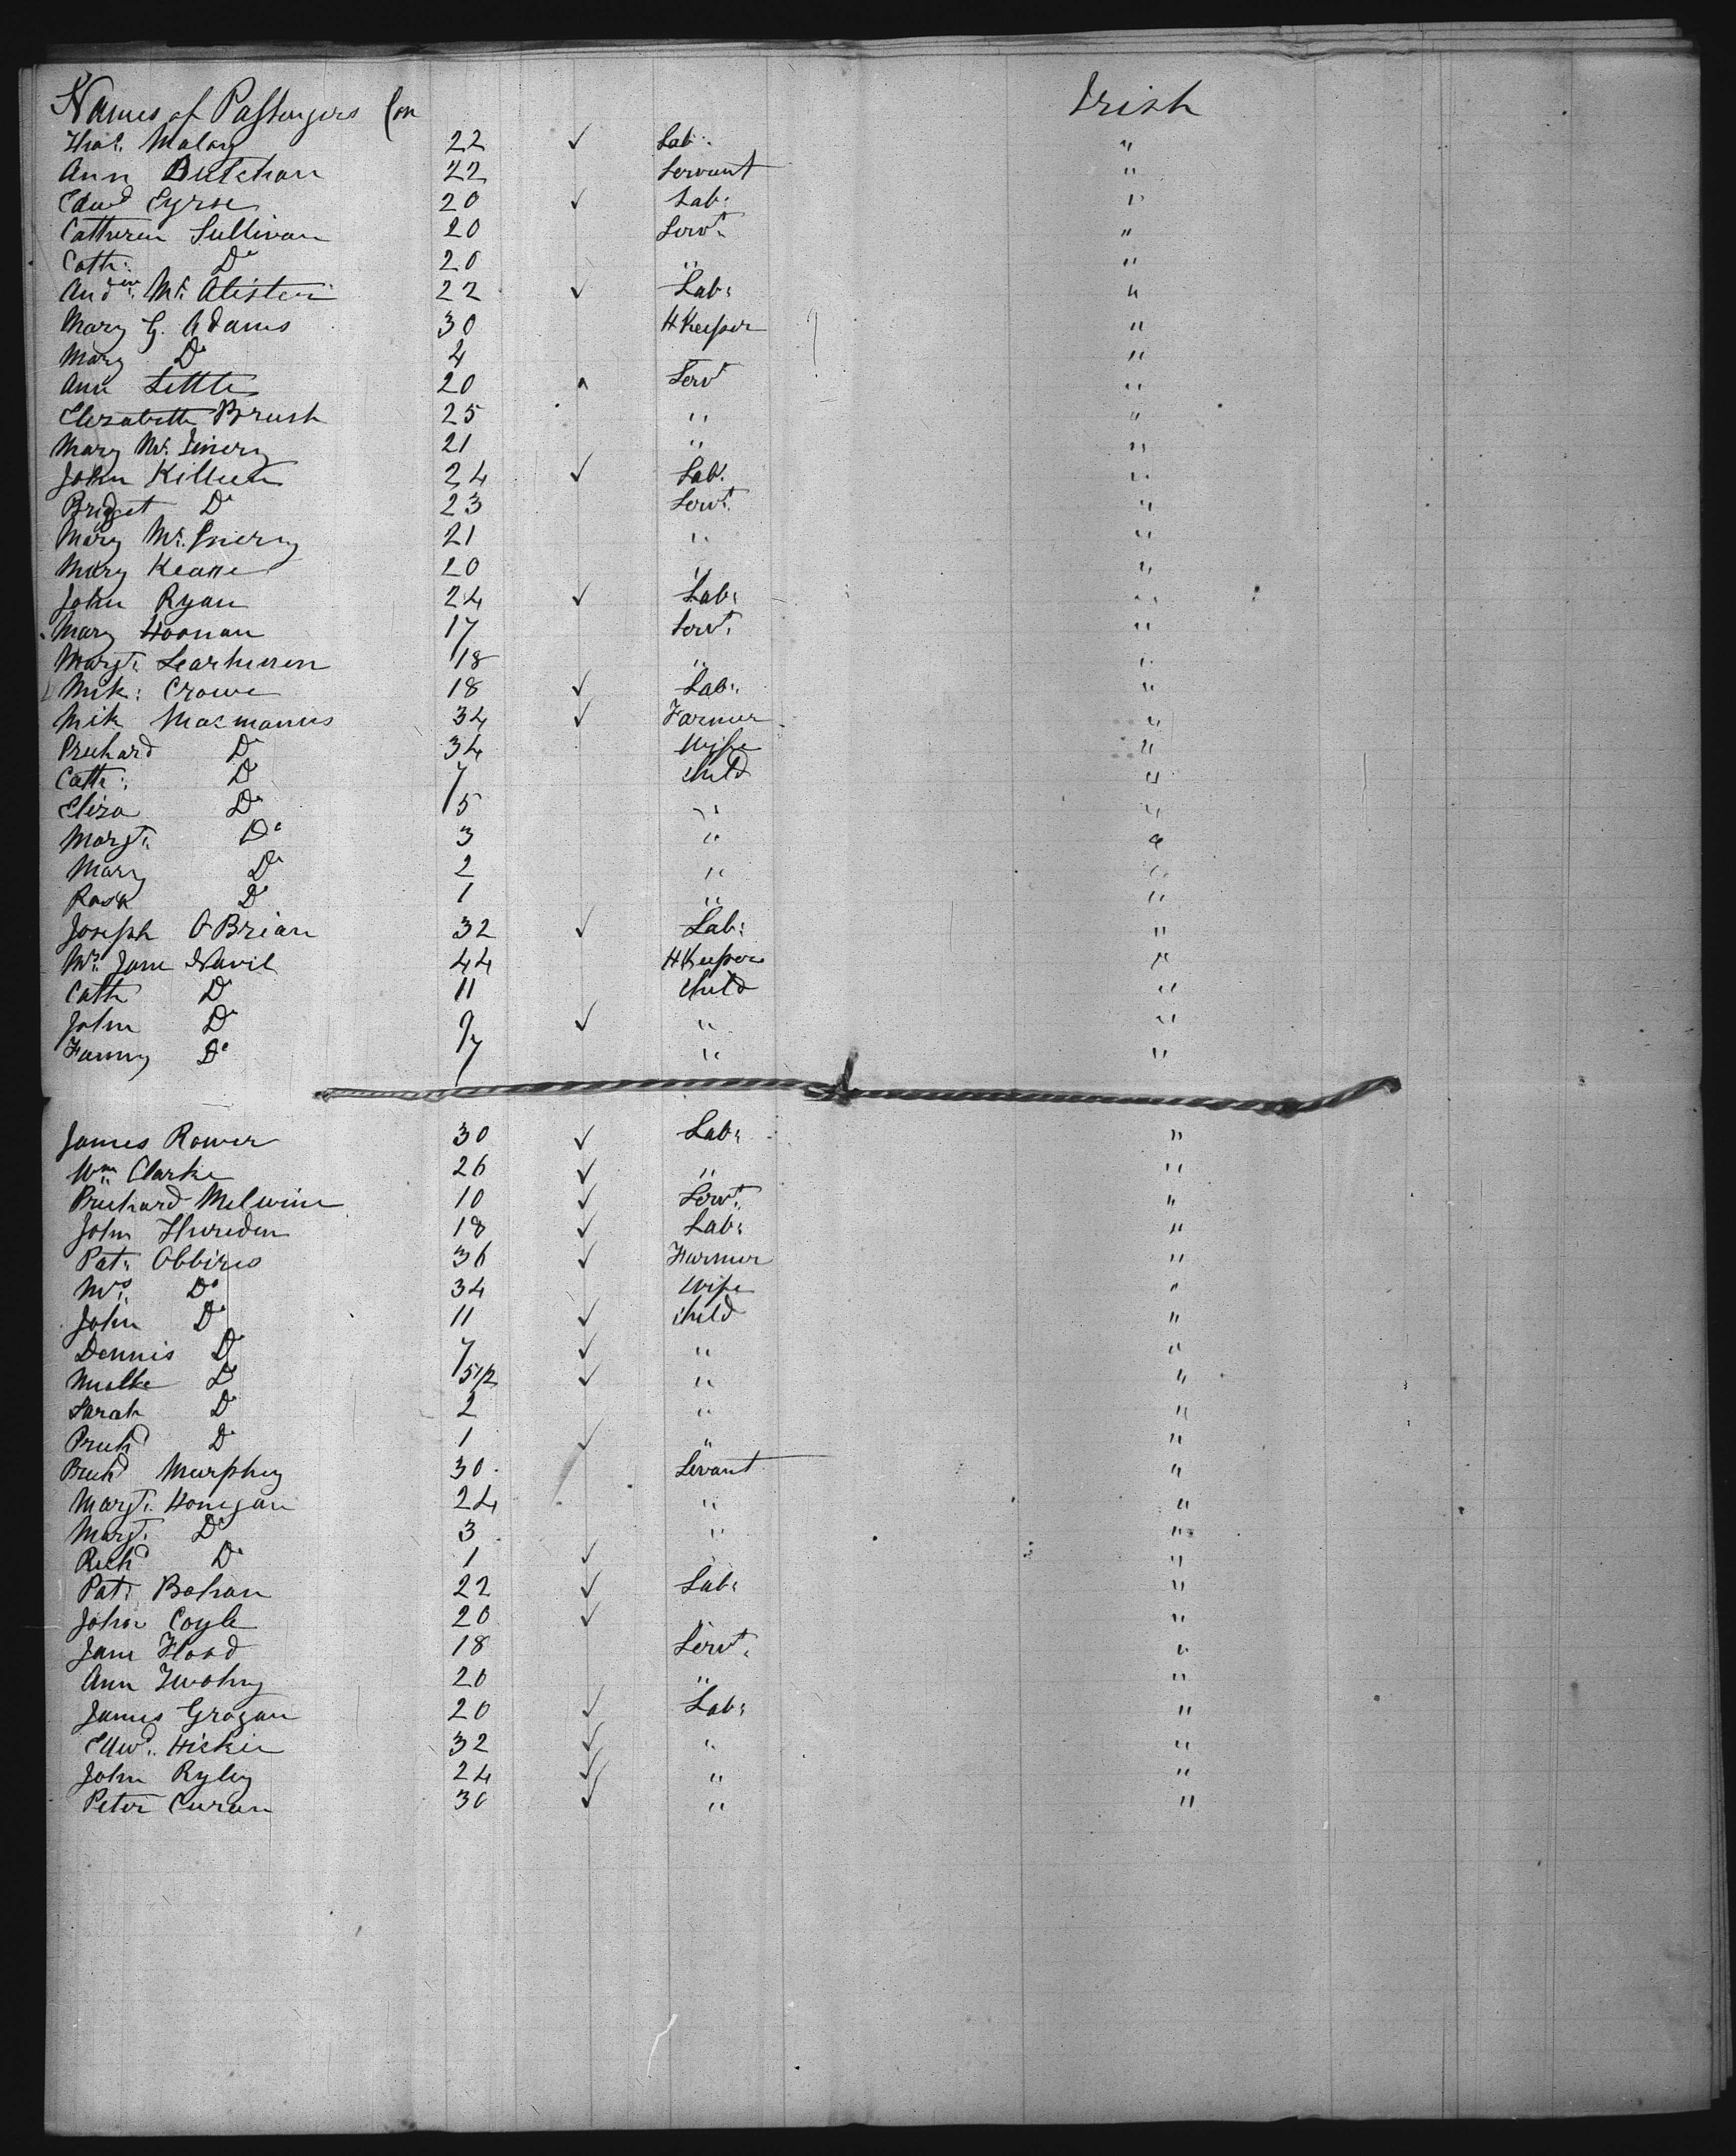 Names of Passengers Con Irish
Thos. Malony 22 ✓ Lab: "
Ann Butchan 22 Servant "
Edwd Eyrse 20 ✓ Lab: "
Cattheren Sullivan 20 Servt. "
Cath: Do 20 " "
Andrew. Mc. Alister 22 ✓ Lab: "
Mary G. Adams 30 HKeeper "
Mary Do 4 "
Ann Little 20 Servt "
Elezabeth Brush 25 " "
Mary Mc. Inery 21 " "
John Killeen 24 ✓ Lab. "
Bridget Do 23 Servt. "
Mary Mc. Inery 21 " "
Mary Keane 20 " "
John Ryan 24 ✓ Lab: "
Mary Hoonan 17 Servt. "
Margt. 18 " "
Mik: Crowe 18 ✓ Lab: "
Mik Macmanus 34 ✓ Farmer "
Do 34 Wife "
Cath: Do 7 Child "
Eliza Do 5 " "
Margt. Do 3 " "
Mary Do 2 " "
Rosa Do 1 " "
Joseph OBrian 32 ✓ Lab: "
Mrs. Jane Navil 44 HKeeper "
Cath Do 11 Child "
John Do 9 ✓ " "
Fanny Do 7 " "
James Rower 30 ✓ Lab: "
Wm. Clarke 26 ✓ " "
Melwine 10 ✓ Servt. "
John Thureden 18 ✓ Lab: "
Pat: Obbires 36 ✓ Farmer "
Mrs. Do 34 Wife "
John Do 11 ✓ Child "
Dennis Do 7 ✓ " "
Do 5 1/2 ✓ " "
Sarah Do 2 " "
Do 1 ✓ " "
Murphey 30 Servant "
Margt. Honegan 24 " "
Margt. Do 3 " "
Richd Do 1 ✓ "
Pat: Bohan 22 ✓ Lab: "
John Coyle 20 ✓ "
Jane Flood 18 Servt. "
Ann Twohny 20 " "
James Grogan 20 ✓ Lab: "
Edwd.. Hickie 32 ✓ " "
John Ryley 24 ✓ " "
Peter Curan 30 ✓ " "